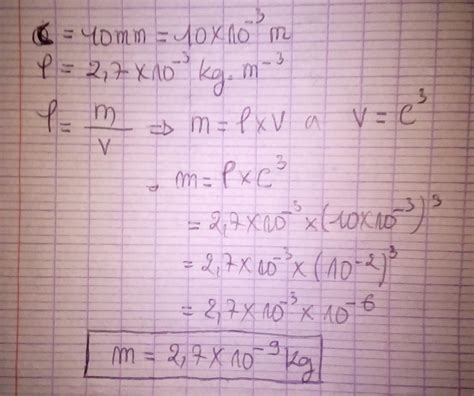 C = 10mm = 10×10⁻³ m
ρ = 2,7×10⁻³ kg.m⁻³
ρ = m/V ⇒ m = ρ×V a V = C³
m = ρ×C³
= 2,7×10⁻³×(10×10⁻³)³
= 2,7×10⁻³×(10⁻²)³
= 2,7×10⁻³×10⁻⁶
m = 2,7×10⁻⁹ kg